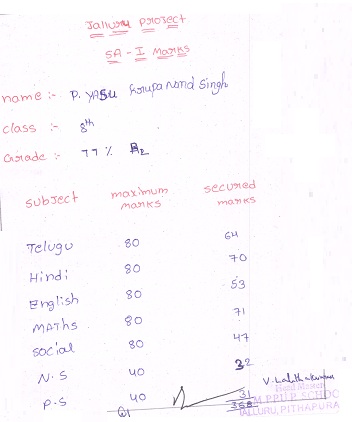 Jalluru Project
SA - I Marks
name :- P. YASU Krupanand Singh
class :- 8th
Grade :- 77% A2
Subject maximum marks secured marks
Telugu 80 64
Hindi 80 70
English 80 53
MAThs 80 71
Social 80 47
N.S 40 32
P.S 40 31
368
Head Master
M.P.P.U.P. SCHOO
JALLURU, PITHAPURA